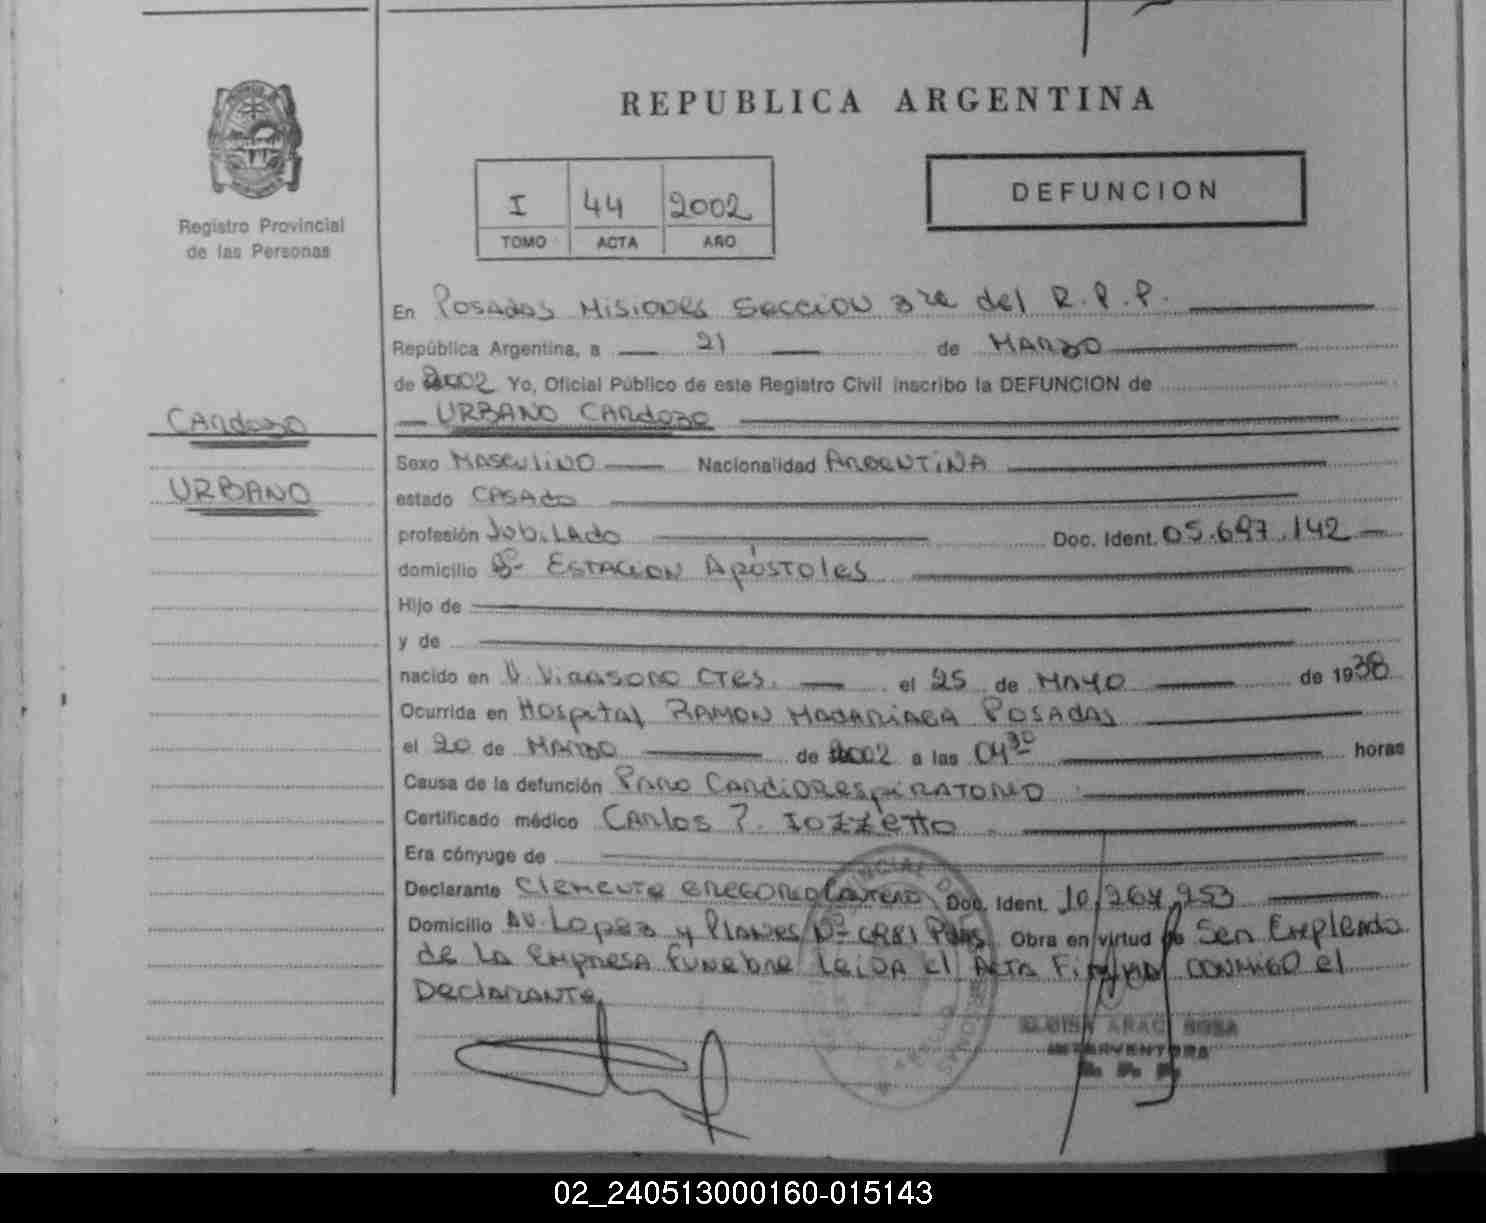 REPUBLICA ARGENTINA
Registro Provincial
de las Personas
I 44 2002
TOMO ACTA AÑO
DEFUNCION
En Posadas Misiones Seccion 3ra del R.P.P.
República Argentina, a 21 de Marzo
de 2002 Yo, Oficial Público de este Registro Civil inscribo la DEFUNCION de
URBANO CARDOZO
Cardozo
URBANO
Sexo Masculino Nacionalidad Argentina
estado Casado
profesión Jubilado Doc. Ident. 05.697.142
domicilio Estacion Apóstoles
Hijo de
y de
nacido en V. Virasoro Ctes. el 25 de Mayo de 1938
Ocurrida en Hospital Ramon Madariaga Posadas
el 20 de Marzo de 2002 a las 04 30 horas
Causa de la defunción Paro Cardiorespiratorio
Certificado médico Carlos Iozzetto
Era cónyuge de
Declarante Clemente Gregorio Doc. Ident. 10.264.253
Domicilio Av. Lopez y Planes Obra en virtud de Ser Empleado
de la Empresa Funebre Leida el Acta Firma conmigo el
Declarante
ARAC SOSA
INTERVENTORA
R. P. P.
02_240513000160-015143